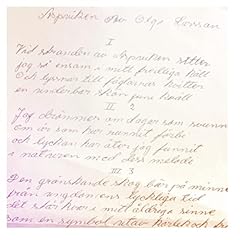 I
Vid stranden av Aspnuten sitter
jag så ensam i mitt fredliga tjäll
och lyssnar till fåglarnas kvitter
en underbar skön juni kväll
II 2
Jag drömmer om dagar som svunnit
om år som har runnit förbi
och lyckan har åter jag funnit
i naturen med dess melodi
III 3
Den grönskande skog bär på minne
från ungdomens lyckliga tid
det står kvar i mitt åldriga sinne
som en symbol utav kärlek och